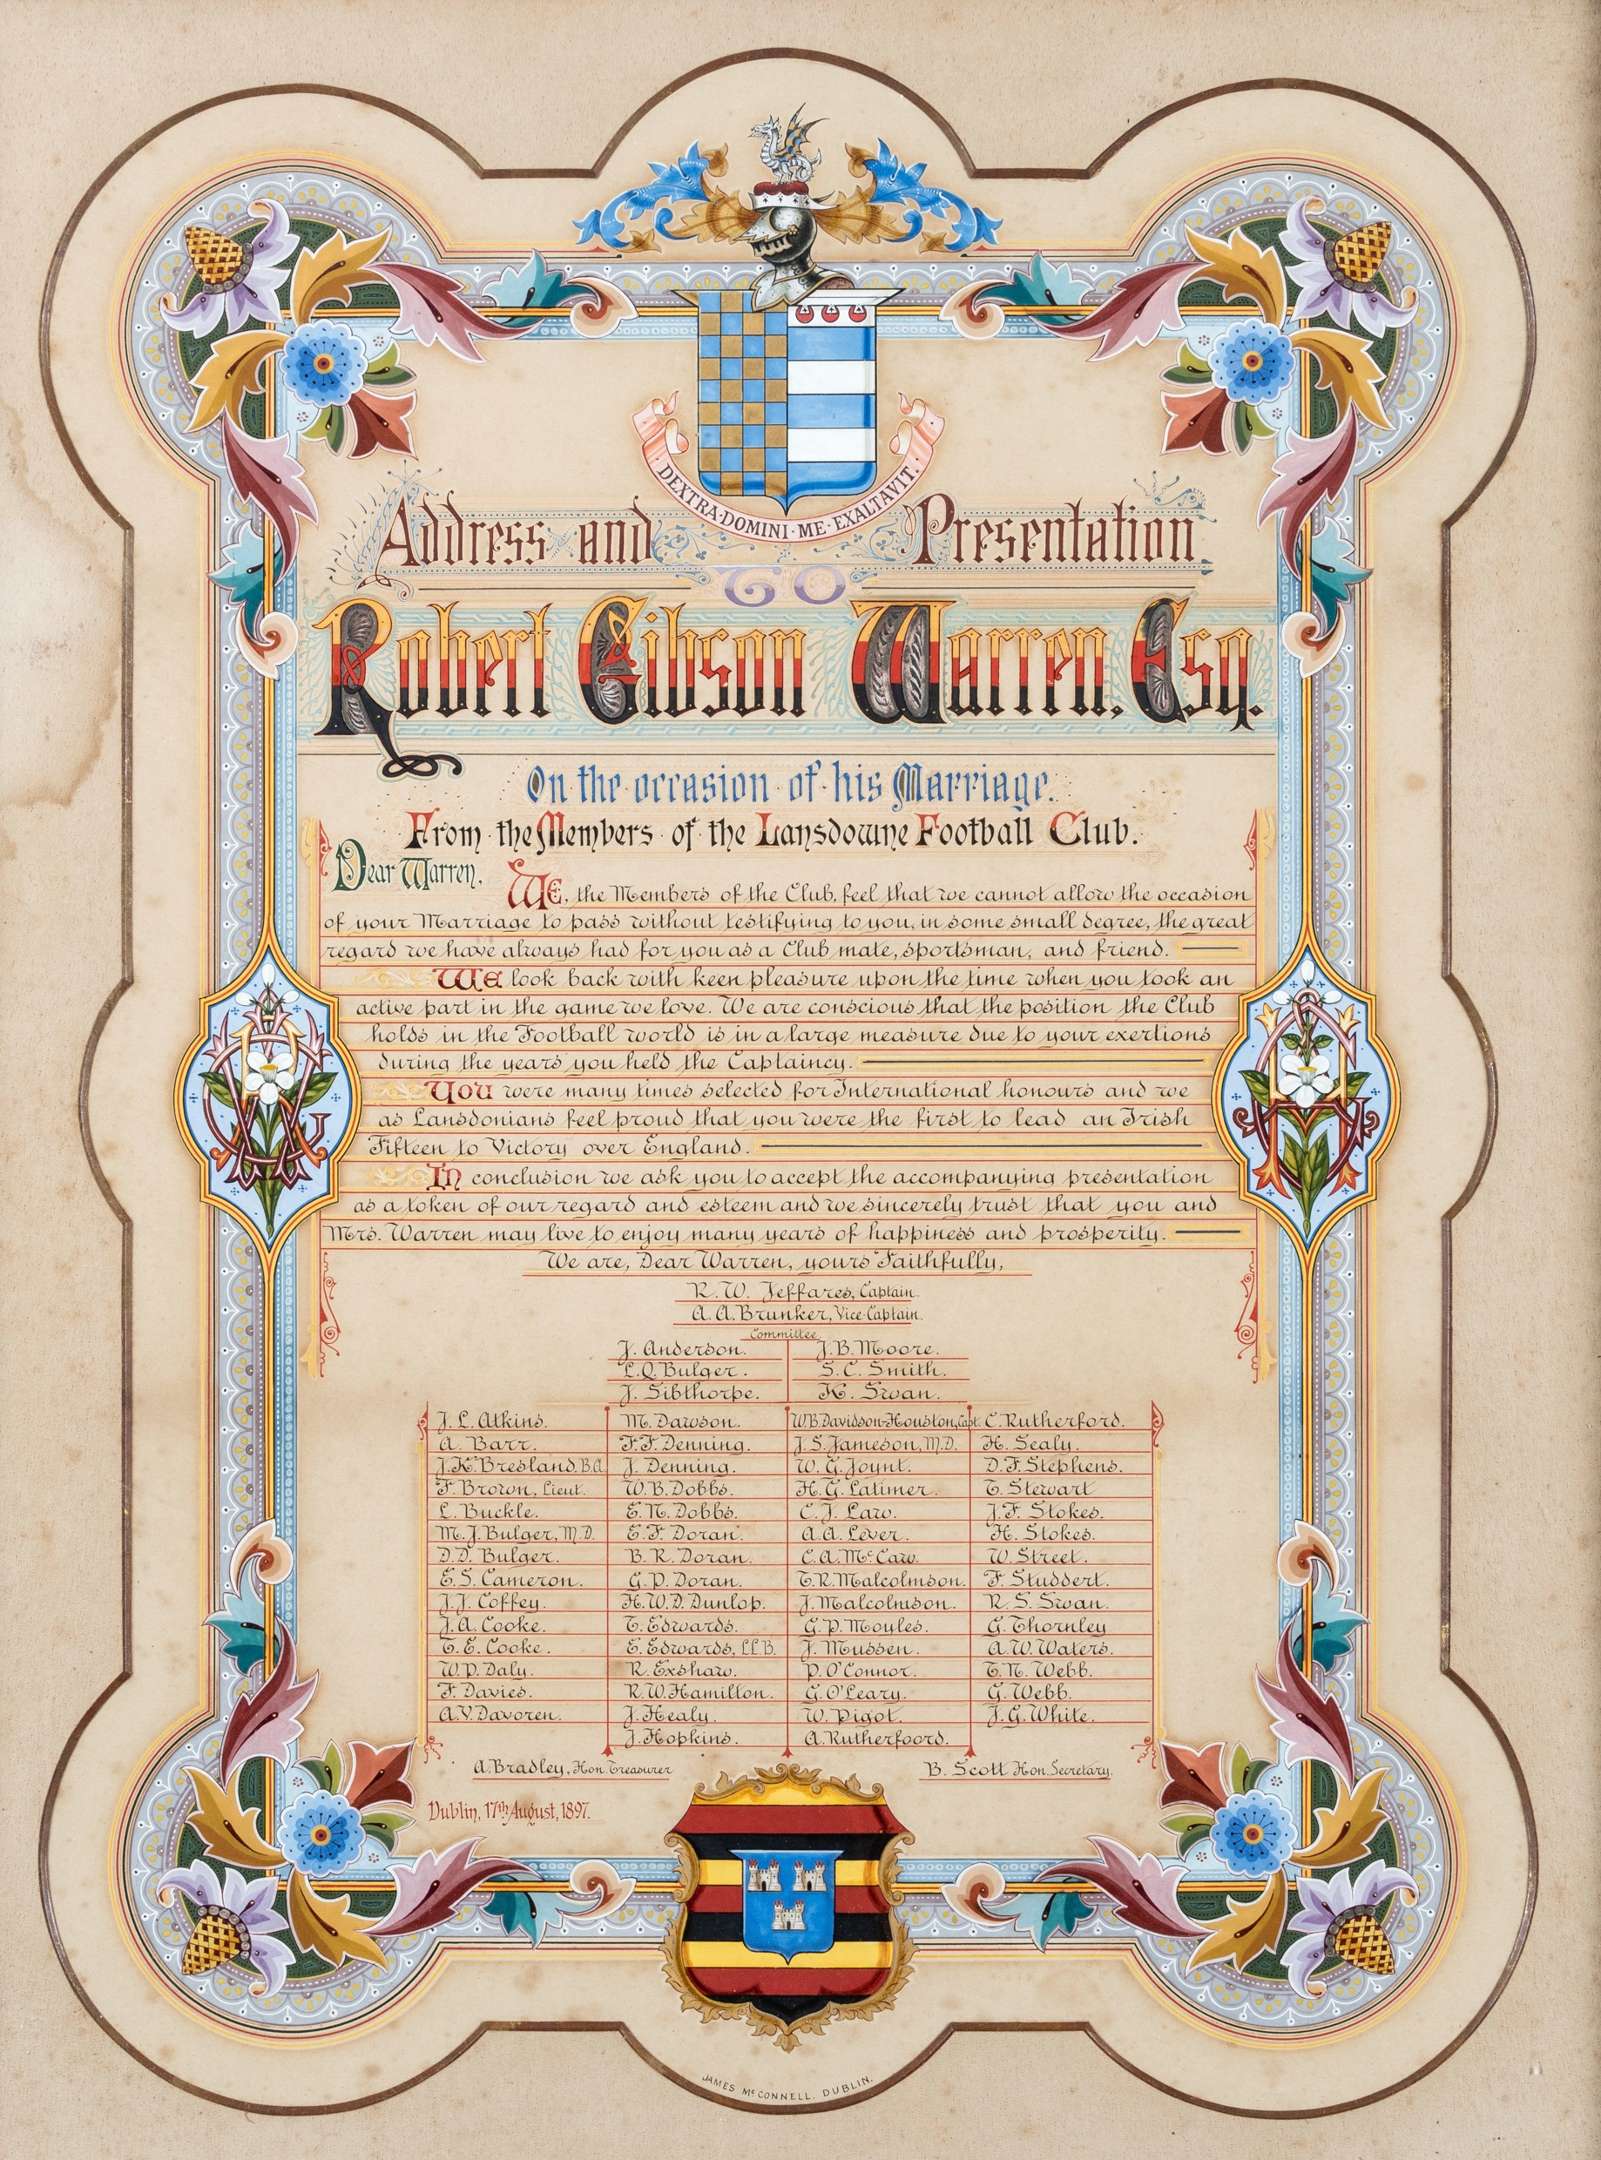 DEXTRA·DOMINI·ME·EXALTAVIT.
Address and Presentation
TO
Robert Gibson Warren, Esq.
On the occasion of his Marriage.
From the Members of the Lansdowne Football Club.
Dear Warren,
WE, the Members of the Club, feel that we cannot allow the occasion
of your Marriage to pass without testifying to you, in some small degree, the great
regard we have always had for you as a Club mate, sportsman, and friend.
WE look back with keen pleasure upon the time when you took an
active part in the game we love. We are conscious that the position the Club
holds in the Football world is in a large measure due to your exertions
during the years you held the Captaincy.
YOU were many times selected for International honours and we
as Lansdonians feel proud that you were the first to lead an Irish
Fifteen to Victory over England.
In conclusion we ask you to accept the accompanying presentation
as a token of our regard and esteem and we sincerely trust that you and
Mrs. Warren may live to enjoy many years of happiness and prosperity.
We are, Dear Warren, yours Faithfully,
R. W. Jeffares, Captain.
A. A. Brunker, Vice-Captain.
Committee
J. Anderson. J. B. Moore.
L. Q. Bulger. S. C. Smith.
J. Sibthorpe. K. Swan.
J. L. Atkins. M. Dawson. W B. Davidson-Houston, Capt. C. Rutherford.
A. Barr. F. F. Denning. J. S. Jameson, M.D. H. Sealy.
J. K. Bresland, B.A. J. Denning. W. G. Joynt. D. F. Stephens.
F. Brown, Lieut. W. B. Dobbs. H. G. Latimer. T. Stewart
L. Buckle. E. N. Dobbs. C. J. Law. J. F. Stokes.
M. J. Bulger, M.D. E. F. Doran. A. A. Lever. H. Stokes.
D. D. Bulger. B. R. Doran. C. A. Mc Caw. W. Street.
E. S. Cameron. G. P. Doran. T. R. Malcolmson. F. Studdert.
J. J. Coffey. H. W. D. Dunlop. J. Malcolmson. R. S. Swan.
J. A. Cooke. T. Edwards. G. P. Moyles. G. Thornley
T. E. Cooke. E. Edwards, LL.B. J. Mussen. A. W. Waters.
W. P. Daly. R. Exshaw. P. O'Connor. T. N. Webb.
F. Davies. R. W. Hamilton. G. O'Leary. G. Webb.
A. V. Davoren. J. Healy. W. Pigot. J. G. White.
J. Hopkins. A. Rutherfoord.
A. Bradley, Hon. Treasurer B. Scott Hon. Secretary.
Dublin, 17th August, 1897.
JAMES McCONNELL, DUBLIN.